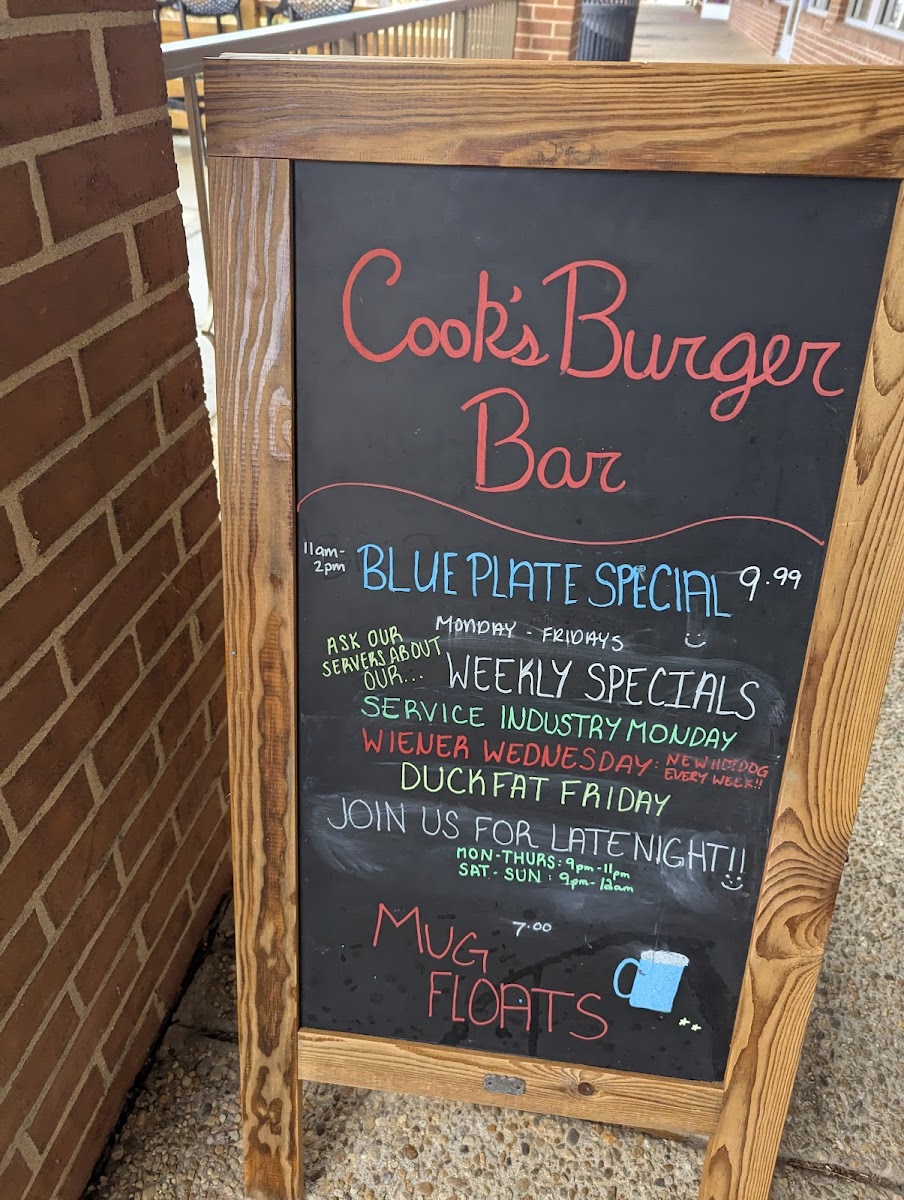 Cook's Burger
Bar
11am-
2pm
BLUE PLATE SPECIAL 9.99
MONDAY - FRIDAYS
ASK OUR
SERVERS ABOUT
OUR...
WEEKLY SPECIALS
SERVICE INDUSTRY MONDAY
WIENER WEDNESDAY: NEW HOTDOG
EVERY WEEK!!
DUCK FAT FRIDAY
JOIN US FOR LATE NIGHT!!
MON-THURS: 9pm-11pm
SAT-SUN: 9pm-12am
7.00
MUG
FLOATS